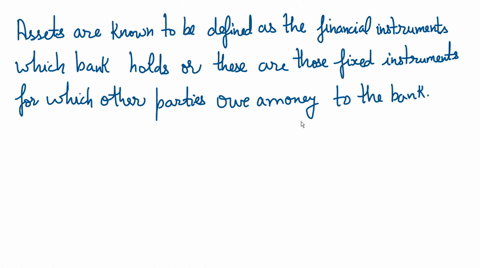 Assets are known to be defined as the financial instruments
which bank holds or these are those fixed instruments
for which other parties owe amoney to the bank.